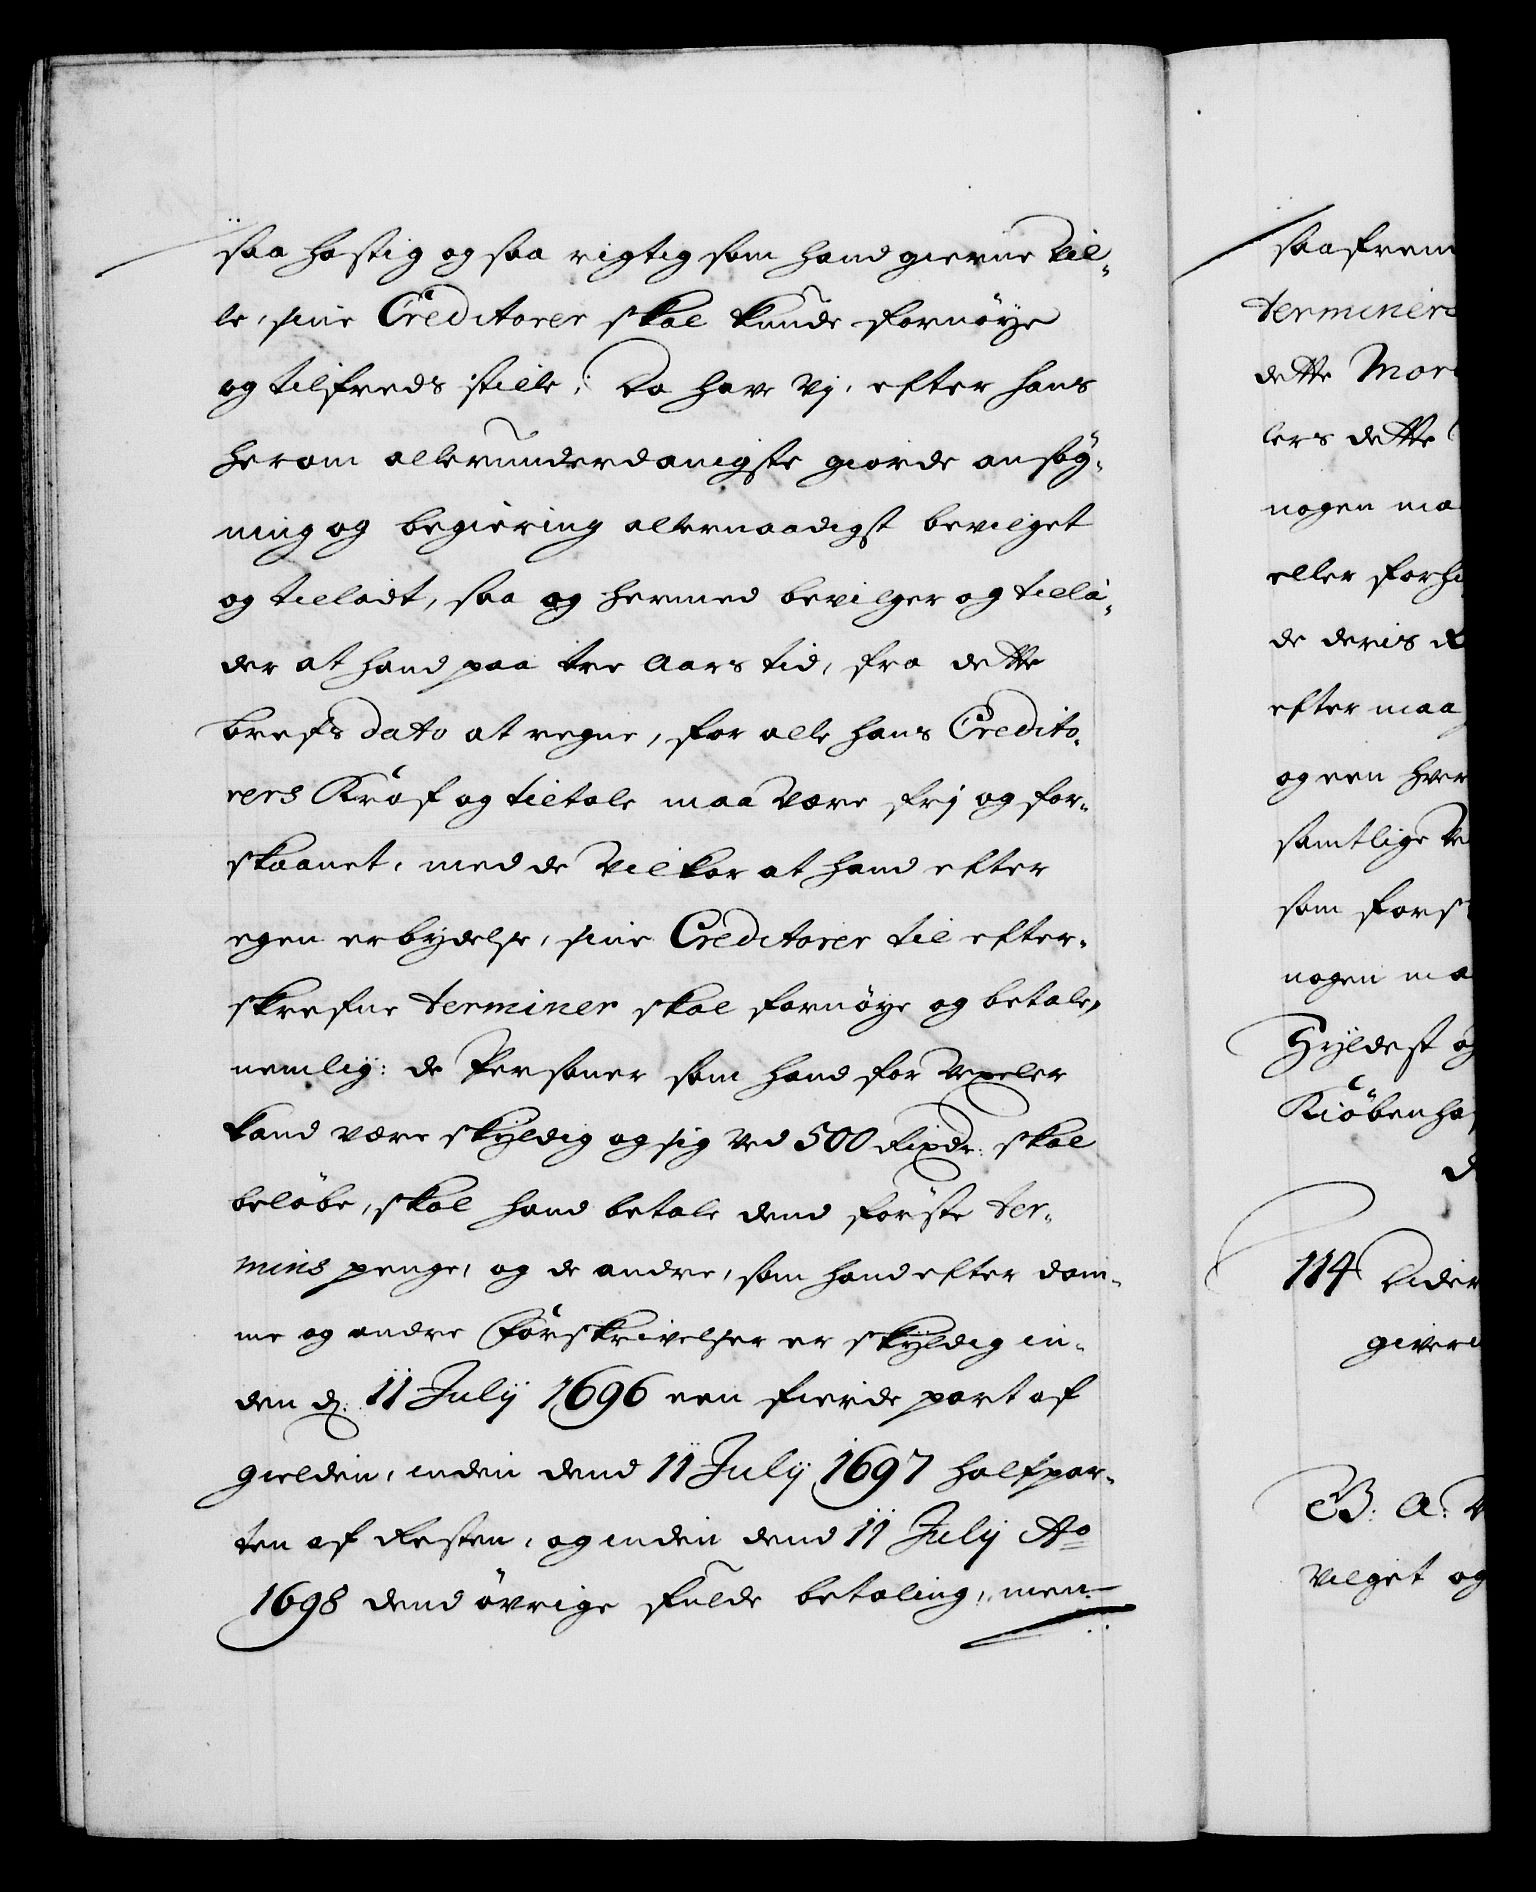 saa hastig og saa rigtig som hand gierne vil-
le, sine Creditorer skal kunde fornöye
og tilfreds stille; Da have Vj, efter hans
herom allerunderdanigste giorde ansög-
ning og begiering allernaadigst bevilget
og tilladt, saa og hermed bevilger og tilla-
der at hand paa tre Aars tid, fra dette
brefs dato at regne, for alle hans Credito-
rers Kraf og tiltale maa være frj og for-
skaanet, med de Vilkor at hand efter
egen erbydelse, sine Creditorer til efter-
skrefne terminer skal fornöye og betale,
nemlig: de Personer som hand for Vexeler
kand være skyldig og sig ved 500 Rixdr: skal
beløbe, skal hand betale dend förste ter-
mins penge, og de andre, som hand efter dom-
me og andre Forskrivelser er skyldig in-
den d: 11 Julij 1696 een fierde part af
gielden, inden dend 11 Julij 1697 halfpar-
ten af Resten, og inden dend 11 Julij Ao
1698 dend övrige fulde betaling, men
saafrem
terminer
dette Mor
lers dette
nogen maa
eller forhi
de deris R
efter maa
og een hver
samtlige Ve
som forsk
nogen maa
Hyldest og
Kiöbenha
114 Dider
giveri
B: A: V
vilget og